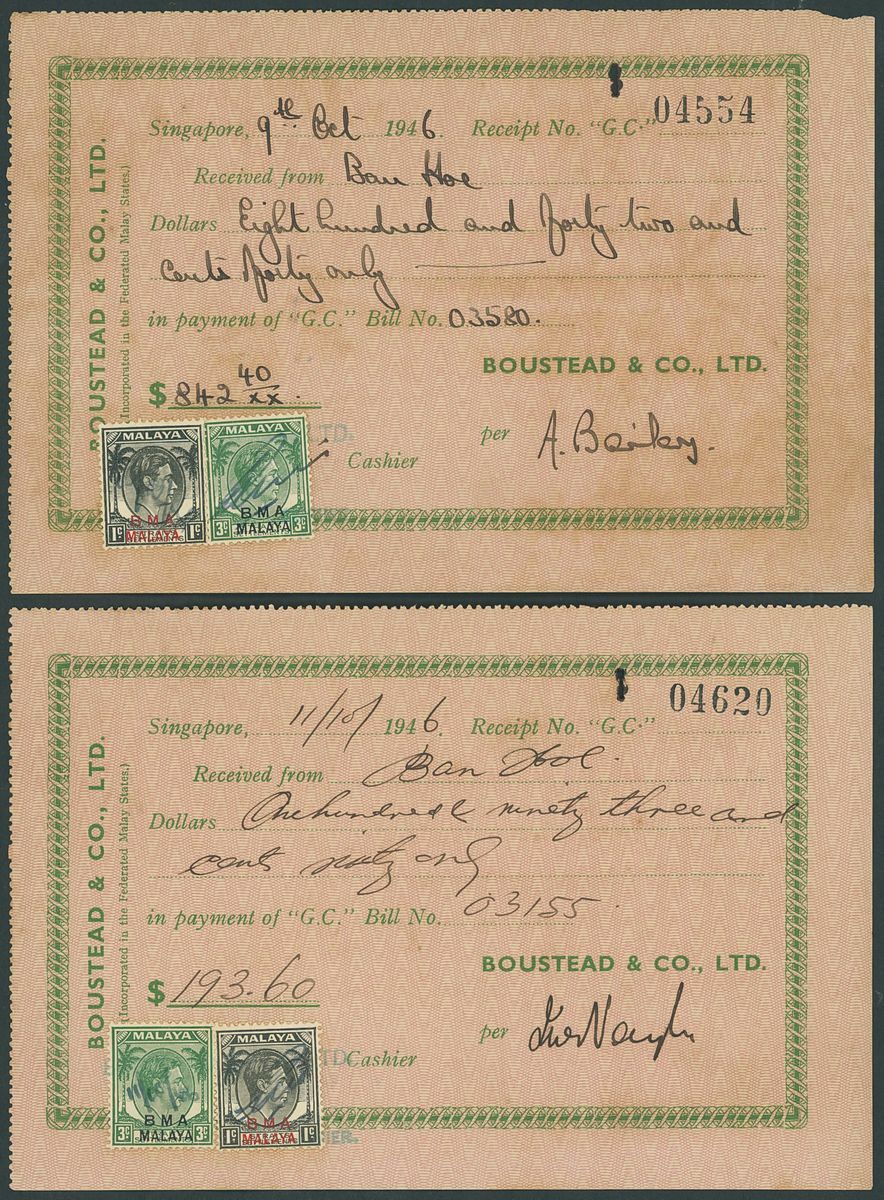 BOUSTEAD & CO., LTD.
(Incorporated in the Federated Malay States.)
Singapore, 9th Oct 1946. Receipt No. "G.C." 04554
Received from Ban Hoe
Dollars Eight hundred and forty two and
cents forty only
in payment of "G.C." Bill No. 03580.
BOUSTEAD & CO., LTD.
$ 842 40/xx.
per A. Bailey.
LTD.
Cashier
MALAYA
BMA
MALAYA
1c 1c
MALAYA
BMA
MALAYA
3c 3c
BOUSTEAD & CO., LTD.
(Incorporated in the Federated Malay States.)
Singapore, 11/10/ 1946. Receipt No. "G.C." 04620
Received from Ban Hoe.
Dollars One hundred & ninety three and
cents sixty only
in payment of "G.C." Bill No. 03155.
BOUSTEAD & CO., LTD.
$ 193.60
per
LTD
Cashier
MALAYA
BMA
MALAYA
3c 3c
MALAYA
BMA
MALAYA
1c 1c
ER.